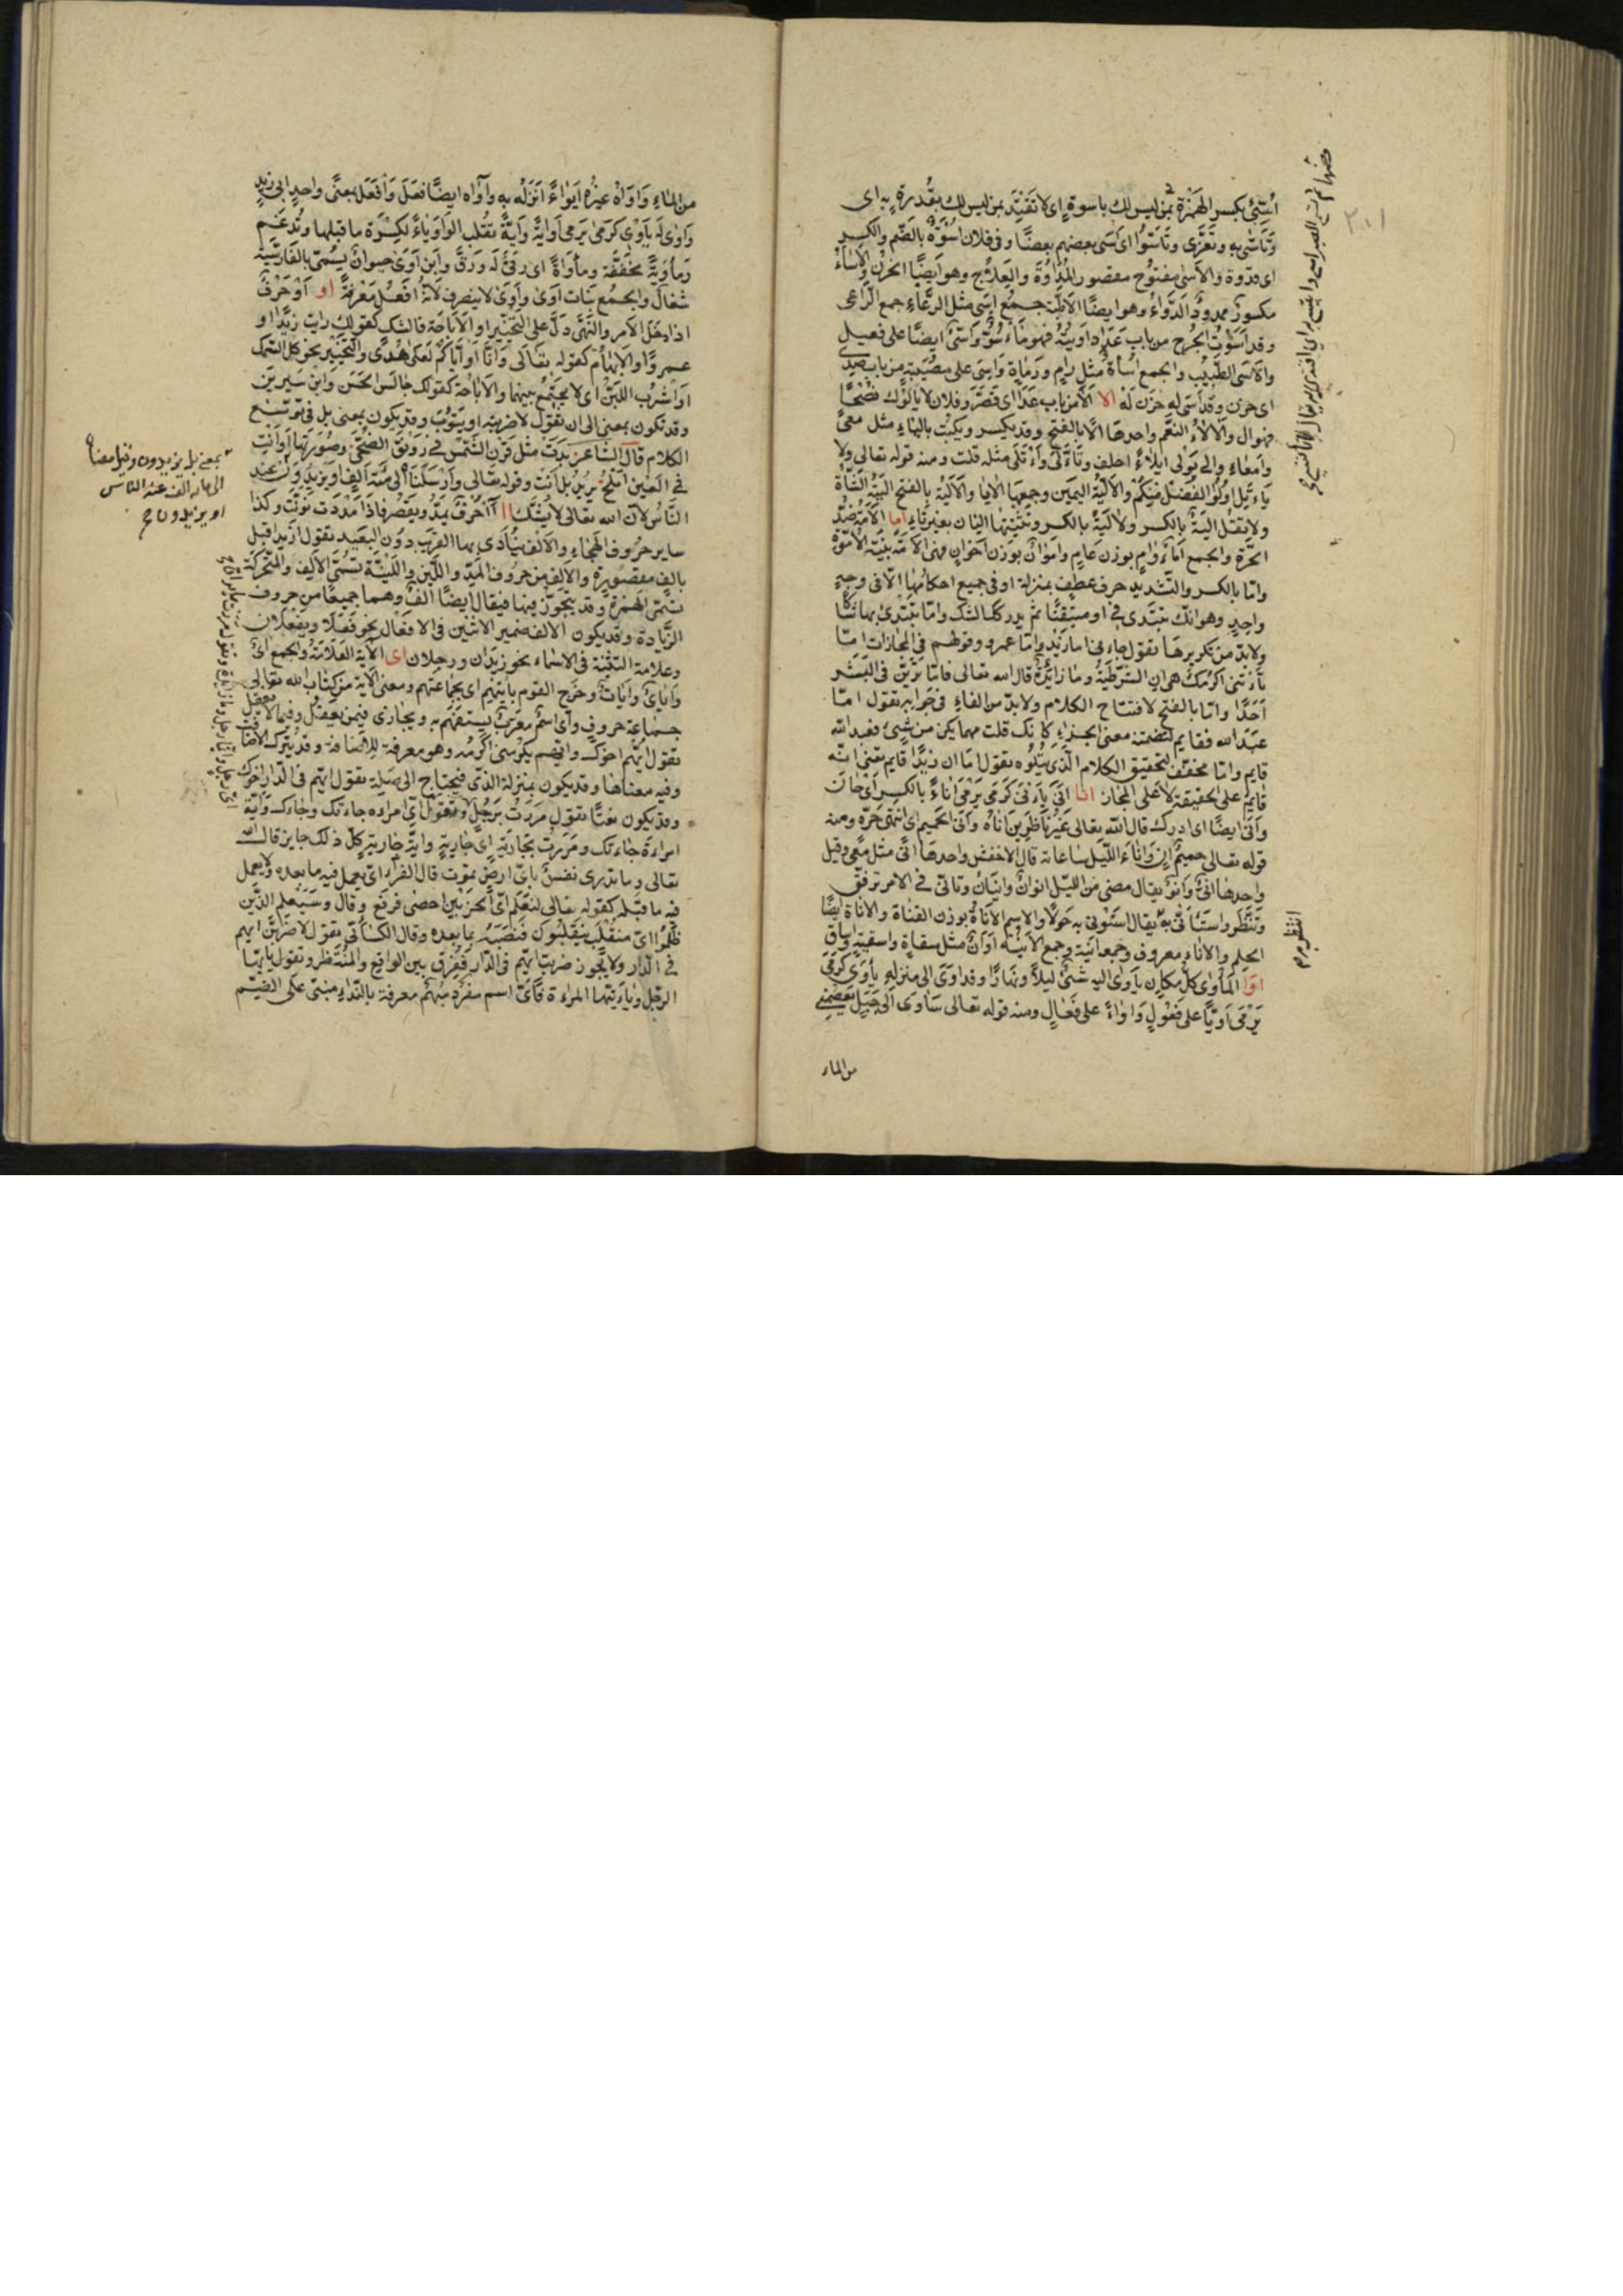 ائتسى بكسر الهمزة بمن ليس لك باسوة اى لا تقتد بمن ليس لك بقدرة به اى
وتأسى به وتعزى وتأسوا اى آسى بعضهم بعضا وفى فلان اسوة بالضم والكسر
اى قدوة والاسى مفتوح مقصور المداوة والعلاج وهو ايضا الحزن والاساء
مكسور ممدود الدواء وهو ايضا الاطبة جمع آسى مثل الرعاء جمع الراعى
وقد اسوت الجرح من باب عدا داويته فهو مأسو واسى ايضا على فعيل
والآسى الطبيب والجمع اساة مثل رام ورماة واسى على مصيبة من باب صدى
اى حزن وقد اسى له حزن له الا الا من باب عدا اى قصر وفلان لا يالوك نصحا
فهو آل والآلاء النعم واحدها الا بالفتح وقد يكسر ويكتب بالياء مثل معى
وامعاء والى يولى ايلاء احلف وتألى وأتلى مثله قلت ومنه قوله تعالى ولا
ياءتل اولوا الفضل منكم والالية اليمين وجمعها الايا والالية بالفتح الية الشاة
ولا تقل الية بالكسر ولا لية بالكسر وتثنيتها اليان بغير تاء اما الامة ضد
الحرة والجمع اماء وآم بوزن عام واموان بوزن اخوان فهى الامة بينة الاموة
واما بالكسر والتشديد حرف عطف بمنزلة او فى جميع احكامها الا فى وجه
واحد وهو انك تبتدى فى او متيقنا ثم يدركك الشك واما تبتدى بها شاكا
ولابد من تكريرها تقول جاءنى اما زيد واما عمرو وقولهم فى المجازات اما
تأتنى اكرمك هى ان الشرطية وما زائدة قال الله تعالى فاما ترين فى البشر
احدا واما بالفتح لافتتاح الكلام ولابد من الفاء فى جوابه تقول اما
عبد الله فقايم لتضمنه معنى الجزاء كانك قلت مهما يكن من شيئ فعبد الله
قايم واما مخفف لتحقيق الكلام الذى يتلوه تقول اما ان زيدا قايم يعنى انه
قايم على الحقيقة لا على المجاز انا انى ياءنى كرمى يرمى اناء بالكسر اى حان
وانى ايضا اى ادرك قال الله تعالى غير ناظرين اناه وانى الحميم اى انتهى حره ومنه
قوله تعالى حميم آن واناء الليل ساعاته قال الاخفش واحدها انى مثل معى وقيل
واحدها انى وانو يقال مضى من الليل انوان وانيان وتأنى فى الامر ترفق
وتنظر واستأنى به يقال استؤنى به حولا والاسم الاناة بوزن القناة والاناة ايضا
الحلم والاناء معروف وجمعه آنية وجمع الآنية اوان مثل سقاء واسقية واساق
اوا المأوى كل مكان يأوى اليه شئ ليلا ونهارا وقد اوى الى منزله يأوى كرمى
يرمى اويا على فعول واواء على فعال ومنه قوله تعالى سآوى الى جبل يعصمنى
من الماء
انتظر
٢٠١
من الماء وآواه غيره ايواء انزله به وآواه ايضا فعل وافعل بمعنى واحد ابى زيد
واوى له يأوى كرمى يرمى اواية واية تقلب الواو ياء لكسرة ما قبلها وتدغم
ومأوية مخففة ومأواة اى رقى له ورق وابن آوى حيوان يسمى بالفارسية
شغال والجمع بنات آوى وآوى لا ينصرف لانه افعل معرفة او او حرف
اذا دخل الامر والنهى دل على التخيير او الاباحة فالشك كقولك رايت زيدا او
عمروا والابهام كقوله تعالى وانا او اياكم لعلى هدى والتخيير نحو كل السمك
او اشرب اللبن اى لا يجتمع بينهما والاباحة كقولك جالس الحسن وابن سيرين
وقد تكون بمعنى الى ان تقول لاضربنه او يتوب وقد يكون بمعنى بل فى توسيع
الكلام قال الشاعر بدت مثل قرن الشمس فى رونق الضحى وصورتها او انت
فى العين املح يريد بل انت وقوله تعالى وارسلناه الى مئة الف او يزيدون عند
الناس لان الله تعالى لا يشك اا آ حرف يمد ويقصر فاذا مددت نونت وكذا
ساير حروف الهجاء والالف ينادى بها القريب دون البعيد تقول ازيد اقبل
بالف مقصورة والالف من حروف المد واللين واللينة تسمى الالف والمتحركة
تسمى الهمزة وقد يتجوز فيها فيقال ايضا الف وهما جميعا من حروف
الزيادة وقد يكون الالف ضمير الاثنين فى الافعال نحو فعلا ويفعلان
وعلامة التثنية فى الاسماء نحو زيدان ورجلان اى الآية العلامة والجمع اى
واياى وآيات وخرج القوم بآيتهم اى بجماعتهم ومعنى الآية من كتاب الله تعالى
جماعة حروف واى اسم معرب يستفهم به ويجازى فيمن يعقل وفيما لا يعقل
تقول ايهم اخوك وايهم يكرمنى اكرمه وهو معرفة للاضافة وقد يترك الاضافة
وفيه معناها وقد يكون بمنزلة الذى فيحتاج الى صلة تقول ايهم فى الدار اخوك
وقد يكون نعتا تقول مررت برجل اى رجل وتقول اى امراءة جاءتك وجاءك واية
امراءة جاءتك ومررت بجارية اى جارية واية جارية كل ذلك جايز قال الله
تعالى وما تدرى نفس باى ارض تموت قال الفراء اى يعمل فيه ما بعده ولا يعمل
فيه ما قبله كقوله تعالى لنعلم اى الحزبين احصى فرفع وقال وسيعلم الذين
ظلموا اى منقلب ينقلبون فنصبه بما بعده وقال الكسائى تقول لاضربن ايهم
فى الدار ولا يجوز ضربت ايهم فى الدار ففرق بين الواقع والمنتظر وتقول يا ايها
الرجل ويا ءيتها المراءة فاى اسم مفرد مبهم معرفة بالنداء مبنى على الضم
بمعنى بل يزيدون وقيل معناه
الى مائة الف عند الناس
او يزيدون